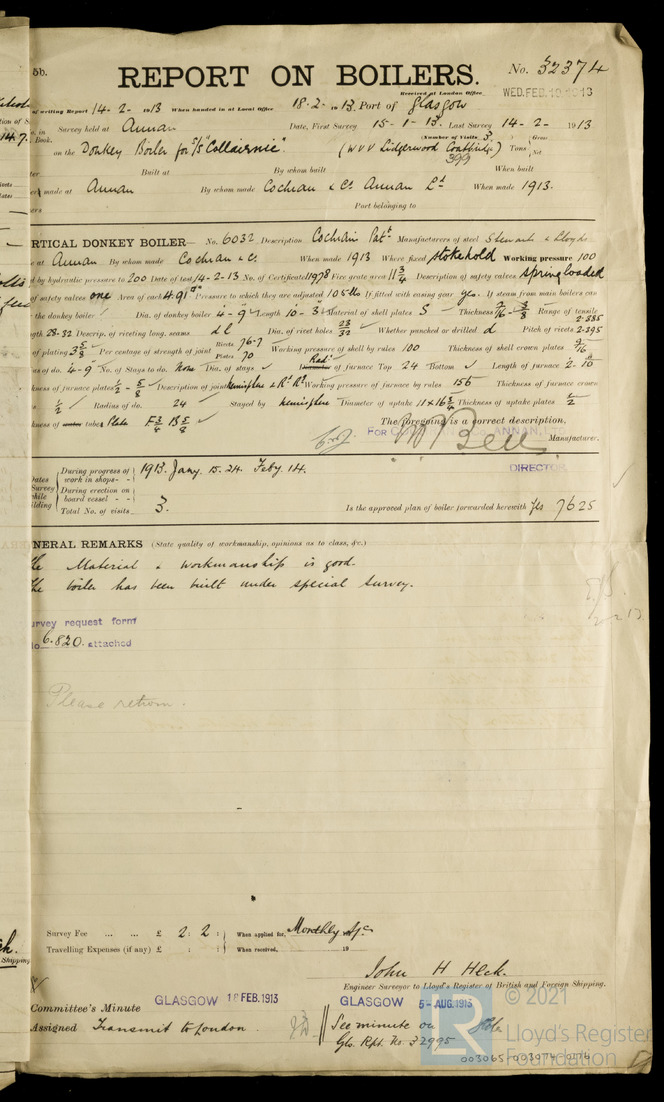 5b.
REPORT ON BOILERS.
No. 32374
Received at London Office
WED. FEB. 19 1913
of writing Report 14-2-1913 When handed in at Local Office 18.2.1913. Port of Glasgow
in Survey held at Annan Date, First Survey 15-1-13. Last Survey 14-2-1913
Book. (Number of Visits 3
on the Donkey Boiler for S/S "Collairnie". (W V V Lidgerwood Coatbridge) Tons { Gross
399 Net
Built at By whom built When built
made at Annan By whom made Cochran & Co. Annan Ld When made 1913.
Port belonging to
RTICAL DONKEY BOILER— No. 6032 Description Cochran Patt. Manufacturers of steel Stewarts & Lloyds
at Annan By whom made Cochran & Co. When made 1913 Where fixed stokehold Working pressure 100
d by hydraulic pressure to 200 Date of test 14-2-13 No. of Certificate 11978 Fire grate area 11 3/4 Description of safety valves spring loaded
of safety valves one Area of each 4.91 Pressure to which they are adjusted 105 lbs If fitted with easing gear yes. If steam from main boilers can
the donkey boiler Dia. of donkey boiler 4-9 Length 10-3 Material of shell plates S Thickness 7/16 - 5/8 Range of tensile
28-32 Descrip. of riveting long. seams d l Dia. of rivet holes 23/32 Whether punched or drilled d Pitch of rivets 2.385 2.395
of plating 3 5/8 Per centage of strength of joint Rivets 76.7 Plates 70 Working pressure of shell by rules 100 Thickness of shell crown plates 9/16
us of do. 4-9 No. of Stays to do. None Dia. of stays Rads of furnace Top 24 Bottom Length of furnace 2-10
kness of furnace plates 1/2 - 5/8 Description of joint hemisphere & Rd Rt Working pressure of furnace by rules 156 Thickness of furnace crown
1/2 Radius of do. 24 Stayed by hemisphere Diameter of uptake 11 x 16 3/4 Thickness of uptake plates 1/2
kness of water tubes Plate F 3/4 B 5/8
The foregoing is a correct description,
FOR COCHRAN & CO. ANNAN, LTD
W Bell Manufacturer.
DIRECTOR
Dates
Survey
while
ilding
During progress of work in shops - - } 1913. Jany. 15. 24 Feby. 14.
During erection on board vessel - - -
Total No. of visits 3.
Is the approved plan of boiler forwarded herewith Yes 7625
NERAL REMARKS (State quality of workmanship, opinions as to class, &c.)
The Material & workmanship is good.
The boiler has been built under special survey.
urvey request form
No. 6.820. attached
Please return.
Survey Fee ... ... £ 2 : 2 : When applied for, Monthly A/c
Travelling Expenses (if any) £ : : When received, 19
John H Heck.
Engineer Surveyor to Lloyd's Register of British and Foreign Shipping.
Committee's Minute GLASGOW 18 FEB. 1913 GLASGOW 5- AUG. 1913
Assigned Transmit to London See minute on
Gls. Rpt. No. 32995
© 2021
Lloyd's Register
Foundation
003065-003074-0274